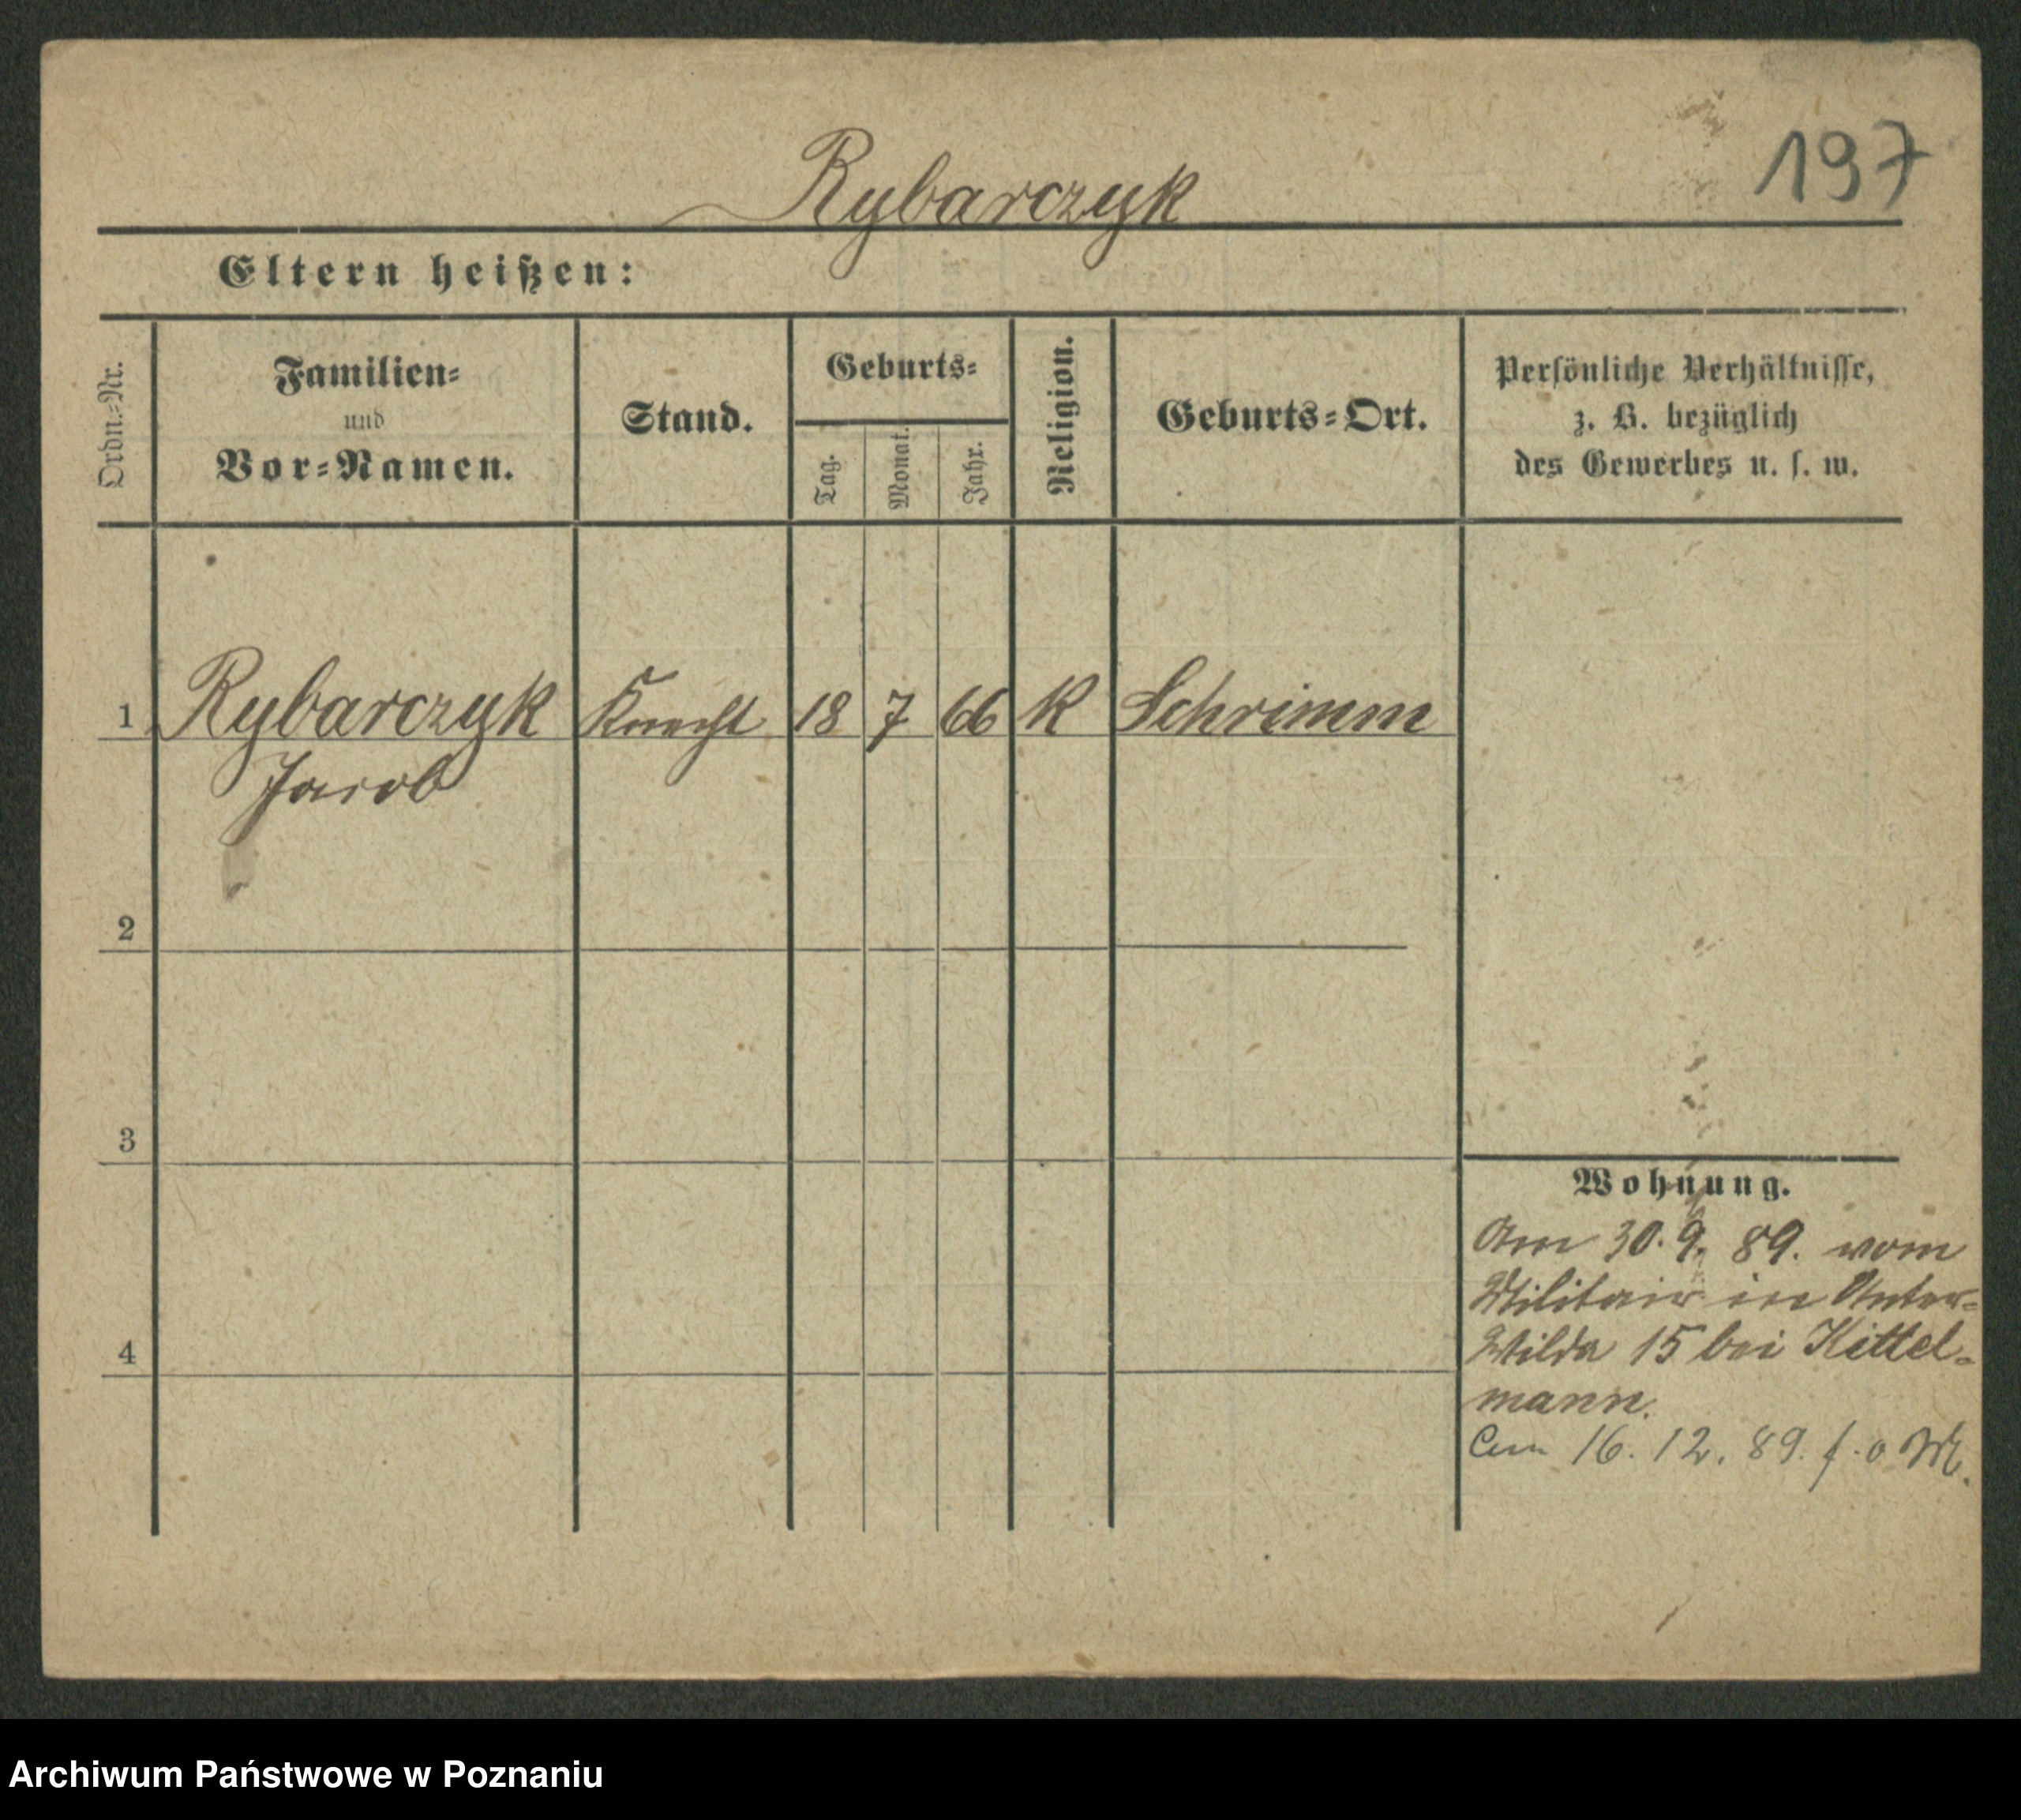 197
Rybarczyk
Eltern heißen:
Ordn.-Nr.
Familien-
und
Vor-Namen.
Stand.
Geburts-
Tag.
Monat.
Jahr.
Religion.
Geburts-Ort.
Persönliche Verhältnisse,
z. B. bezüglich
des Gewerbes u. s. w.
1 Rybarczyk Knecht 18 7 66 K Schrimm
Jacob
2
3
4
Wohnung.
Am 30. 9. 89. vom
Militair in Unter-
Wilda 15 bei Kittel-
mann.
Am 16. 12. 89. f. o M.
Archiwum Państwowe w Poznaniu